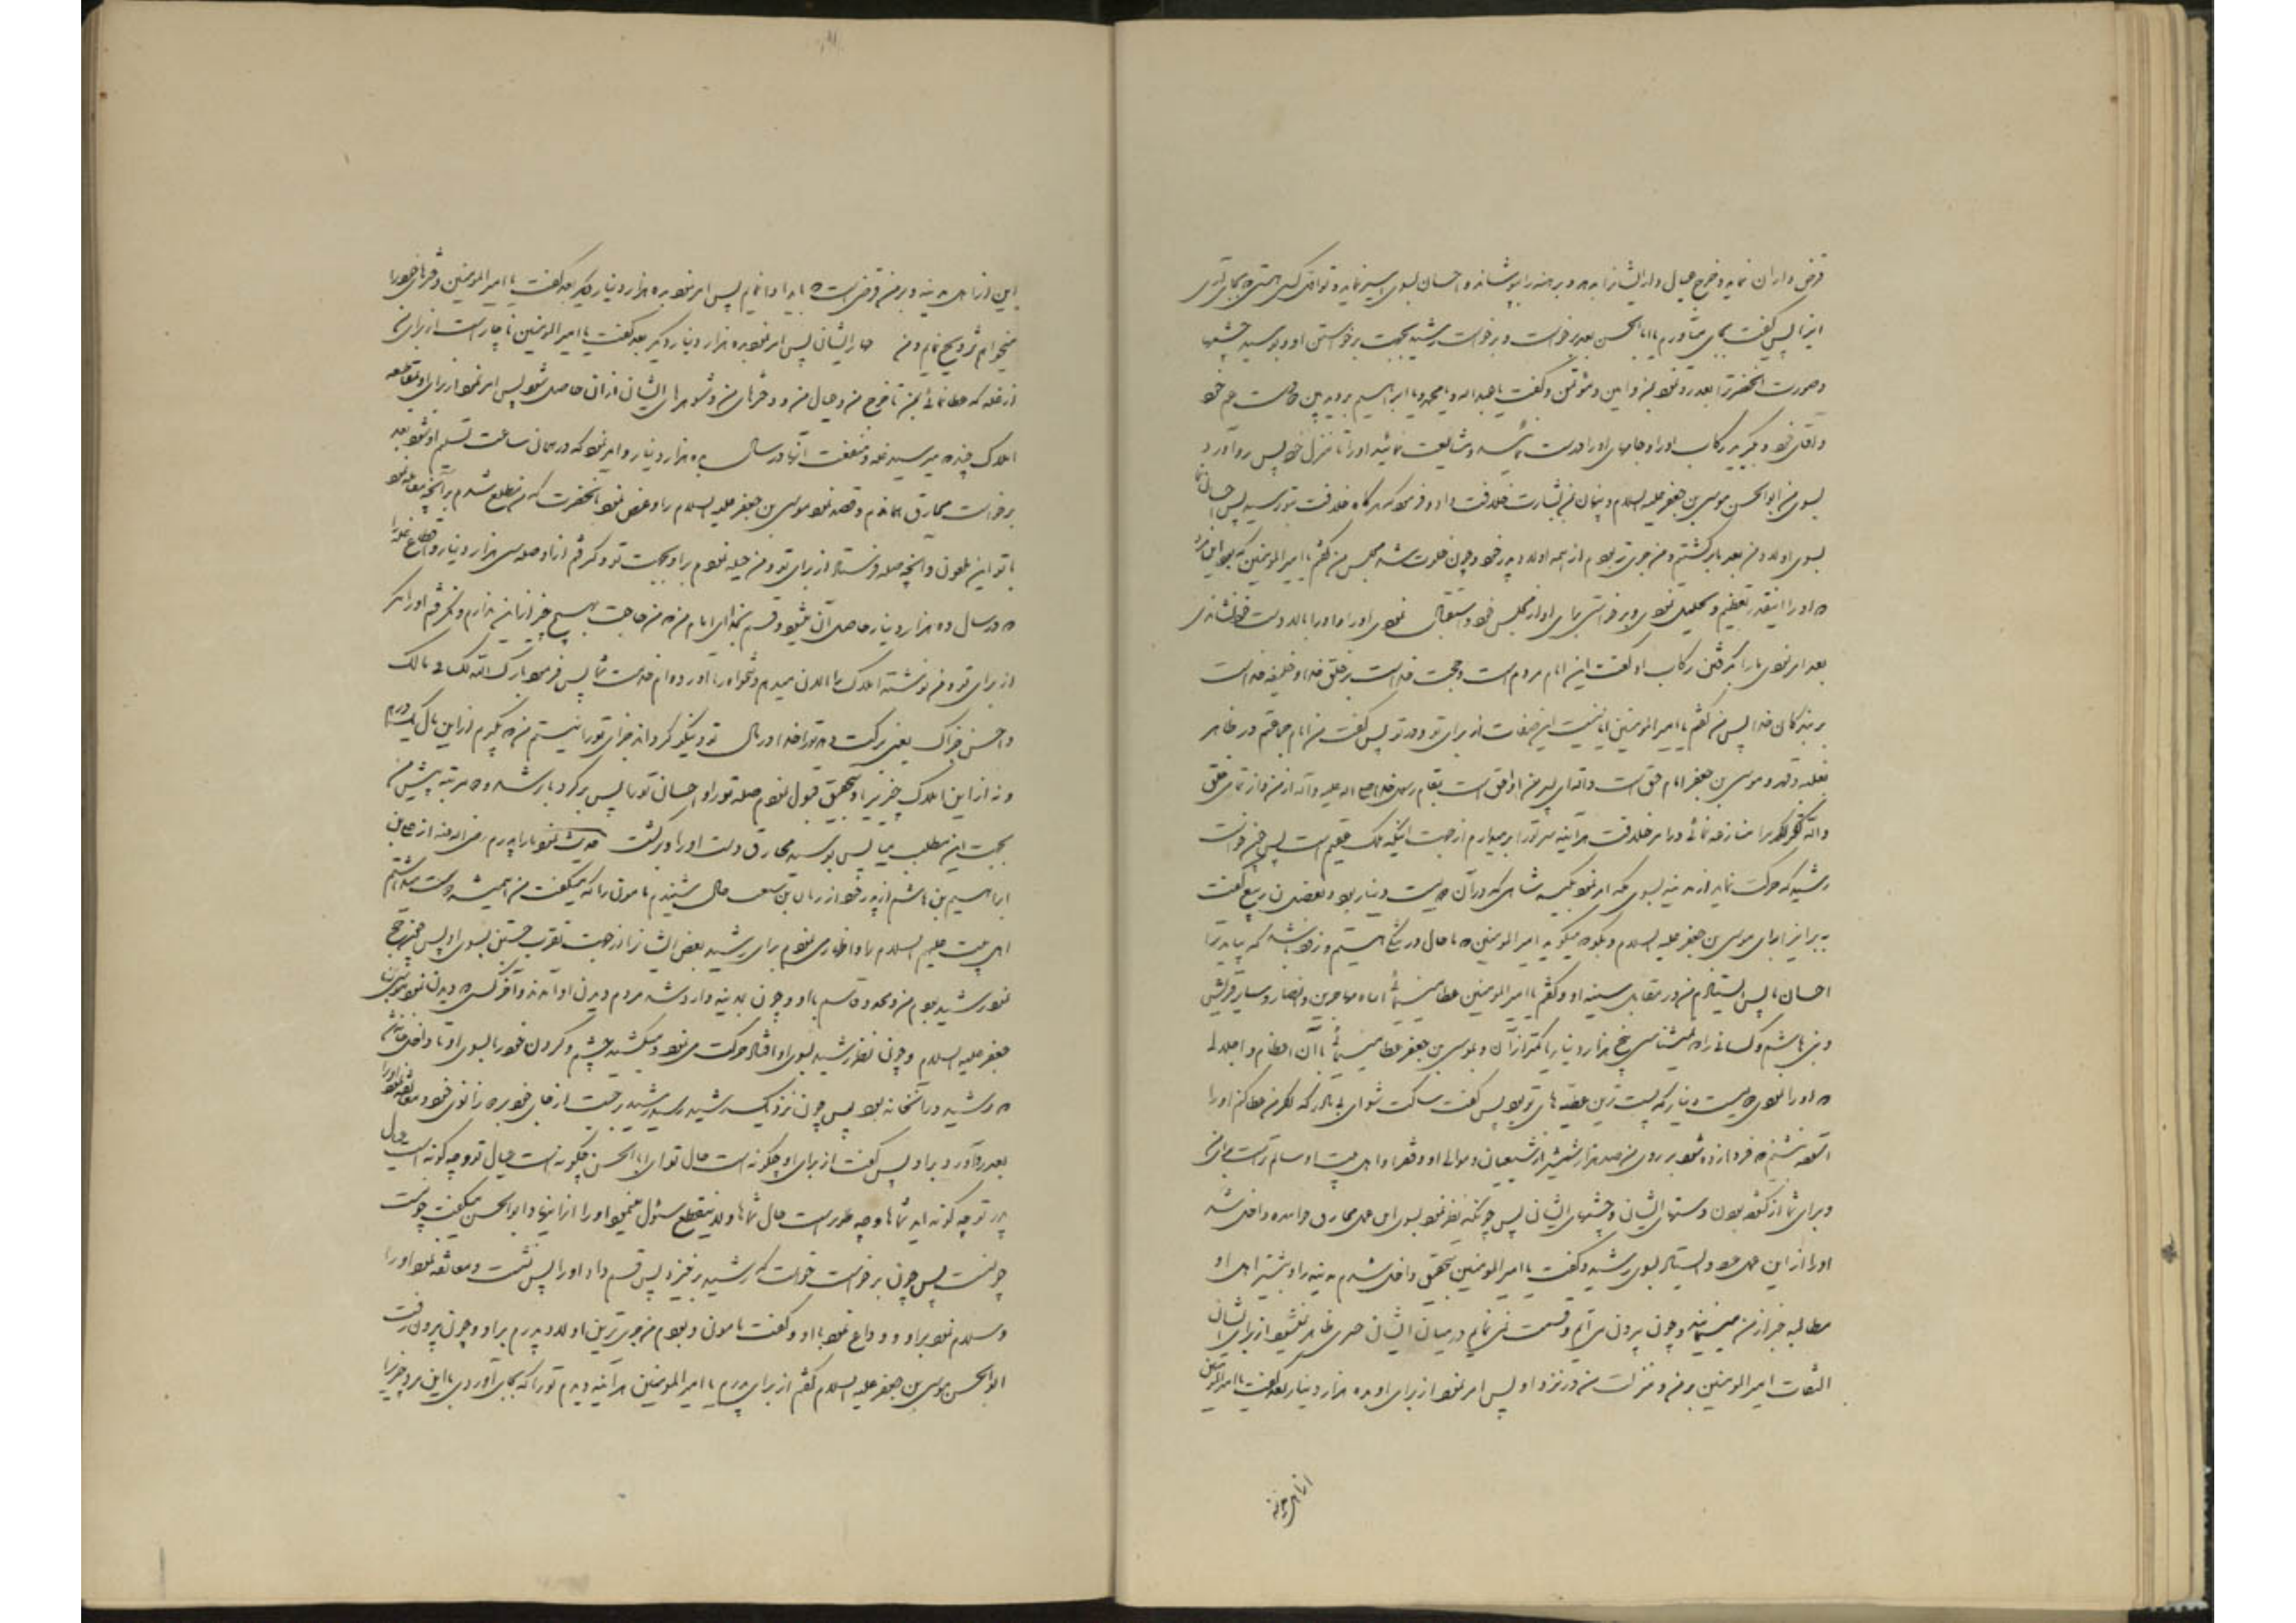 قرض داران نماید و خرج عیال دار ایشانرا بدهد و برهنه را بپوشاند و احسان بسوی اسیر نماید و تو اولی کسی هستی که بجای آوری
اینرا پس گفت بجای میآورم یا ابا الحسن بعد برخواست و برخواست رشید بجهت برخواستن او و بوسید چشمها
و صورت آنحضرترا بعد رو نمود بمن و امین و مؤتمن و گفت یا عبد الله و یا محمد و یا ابراهیم بروید پیش روی عم خود
و آقای خود و بگیرید رکاب او را و جامهای او را درست نمائید و مشایعت نمائید او را تا منزل خود پس رو آورد
بسوی من ابو الحسن موسی بن جعفر علیه السلام و پنهان بمن بشارت خلافت داد و فرمود که هرگاه خلافت بتو رسید پس احسان نما
بسوی اولاد من بعد بازگشتیم و من جری تر بودم از همه اولاد پدر خود و چون خلوت شد مجلس من گفتم یا امیر المؤمنین که بود این مرد
که او را اینقدر تعظیم و تجلیل نمودی و برخواستی برای او از مجلس خود و استقبال نمودی او را و او را بالا دست خود نشاندی
بعد امر نمودی ما را بگرفتن رکاب او گفت این امام مردم است و حجت خداست بر خلق خدا و خلیفه خداست
بر بندگان خدا پس من گفتم یا امیر المؤمنین ایا نیست این صفات از برای تو و در تو پس گفت من امام جماعتم در ظاهر
بغلبه و قهر و موسی بن جعفر امام حق است و الله ای پسر من او احق است بمقام رسول خدا صلی الله علیه و آله از من و از تمامی خلق
والله که اگر تو با من منازعه نمائی در امر خلافت هرآینه سر تو را برمیدارم از جهت اینکه ملک عقیم است پس چون خواست
رشید که حرکت نماید از مدینه بسوی مکه امر نمود بکیسه سیاهی که در آن دویست دینار بود و بفضل بن ربیع گفت
ببر اینرا برای موسی بن جعفر علیه السلام و بگو که میگوید امیر المؤمنین که ما حال در تنگی هستیم و زود باشد که بیاید ترا
احسان ما پس ایستادم من در مقابل سینه او و گفتم یا امیر المؤمنین عطا مینمائی ابناء مهاجرین و انصار و سایر قریش
و بنی هاشم و کسانی را که نمیشناسی پنج هزار دینار یا کمتر از آن و بموسی بن جعفر عطا مینمائی با آن اعظام و اجلالی
که او را نمودی دویست دینار که پست ترین عطیه های تو بود پس گفت ساکت شو ای بی مادر که اگر من عطا کنم او را
آنوقت ایمن نیستم که فردا زده شود بر روی من صد هزار شمشیر از شیعیان و موالی او و فقر او و اهل بیت او سالم تر است برای من
و برای شما از گشوده بودن دستهای ایشان و چشمهای ایشان پس چونکه نظر نمود بسوی این عمل مخارق خواننده داخل شد
او را از این عمل و ایستاد بسوی رشید و گفت یا امیر المؤمنین بتحقیق داخل شدم مدینه را و بیشتر اهل او
مطالبه چیز از من مینمایند و چون بیرون می آیم و قسمت نمی نمایم در میان ایشان چیزی ظاهر نمیشود از برای ایشان
التفات امیر المؤمنین بر من و منزلت من در نزد او پس امر نمود از برای او بده هزار دینار بعد گفت یا امیر المؤمنین
این از اهل مدینه و بر من قرض است که باید ادا نمایم پس امر نمود بده هزار دینار دیگر بعد گفت یا امیر المؤمنین دخترهای خود را
میخواهم تزویج نمایم و من ایشان پس امر نمود بده هزار دینار دیگر بعد گفت یا امیر المؤمنین ناچار است از برای من
از غله که عطا نمائی بمن تا خرج من و عیال من و دخترهای من و شوهرهای ایشان از آن حاصل شود پس امر نمود از برای او بمقاطعه
املاک چند که میرسید غله و منفعت آنها در سال بده هزار دینار و امر نمود که در همان ساعت تسلیم او شود بعد
برخواست مخارق و قصد نمود موسی بن جعفر علیه السلام را و عرض نمود بآنحضرت که من مطلع شدم بر آنچه معامله نمود
با تو این ملعون و آنچه صله فرستاد از برای تو و من حیله نمودم بر او بجهت تو و گرفتم از او صله سی هزار دینار و اقطاع غله را
که در سال ده هزار دینار حاصل آن میشود و قسم بخدا ای امام من که من حاجت بهیچ چیز از این ندارم و نگرفتم او را مگر
از برای تو و من نوشته املاک را الان میدهم و تنخواه را آورده ام خدمت شما پس فرمود بارک الله لک فی مالک
و احسن جزاک یعنی برکت دهد تو را خدا در مال تو و نیکو گرداند جزای تو را نیستم من که بگیرم از این مال یک درهم
و نه از این املاک چیزی را و بتحقیق قبول نمودم صله تو را و احسان تو را پس برگرد بارشد و مرتبه پیش من
بجهت این مطلب میا پس بوسید مخارق دست او را و برگشت حدیث نمود ما را پدرم رضی الله عنه از علی بن
ابراهیم بن هاشم از پدر خود از ریان بن شبیب گفت شنیدم مامون را که میگفت من همیشه دوست میداشتم
اهل بیت علیهم السلام را و اظهار می نمودم برای رشید بغض ایشانرا از جهت تقرب جستن بسوی او پس چون حج
نمود رشید بودم من و محمد و قاسم با او و چون بمدینه وارد شد مردم دیدن او آمدند و آخر کسی که دیدن نمود موسی بن
جعفر علیه السلام و چون نظر رشید بسوی او افتاد حرکت می نمود و میکشید چشم و گردن خود را بسوی او تا داخل خانه شد
که رشید در آنخانه بود پس چون نزدیک رشید رسید رشید برجست از جای خود بدو زانوی خود و معانقه نمود او را
بعد رو آورد بر او پس گفت از برای او چگونه است حال تو ای ابا الحسن چگونه است عیال تو و چه گونه است عیال
پدر تو چه گونه اید شما ها و چه طور است حال شما ها و لاینقطع سئوال مینمود او را از اینها و ابو الحسن میگفت خوبست
خوبست پس چون برخواست خواست که رشید برخیزد پس قسم داد او را پس نشست و معانقه نمود او را
و سلام نمود بر او و وداع نمود با او و گفت مامون و بودم من جری ترین اولاد پدرم بر او و چون بیرون رفت
ابو الحسن موسی بن جعفر علیه السلام گفتم از برای پدرم یا امیر المؤمنین هرآینه دیدم تو را که بجای آوردی با این مرد چیزی را
از اهل مدینه